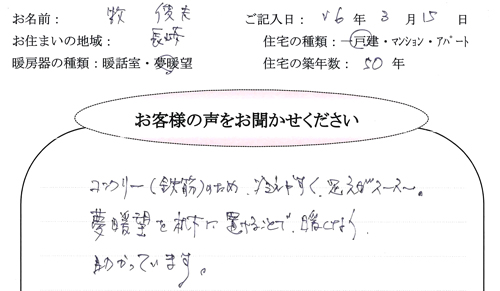 お名前： 牧 俊夫 ご記入日： 16 年 3 月 15 日
お住まいの地域： 長崎 住宅の種類：一戸建・マンション・アパート
暖房器の種類：暖話室・夢暖望 住宅の築年数： 50 年
お客様の声をお聞かせください
コンクリー（鉄筋）のため、冷えやすく、足えがスースー。
夢暖望を机下に置けることで、暖くなり、
助かっています。